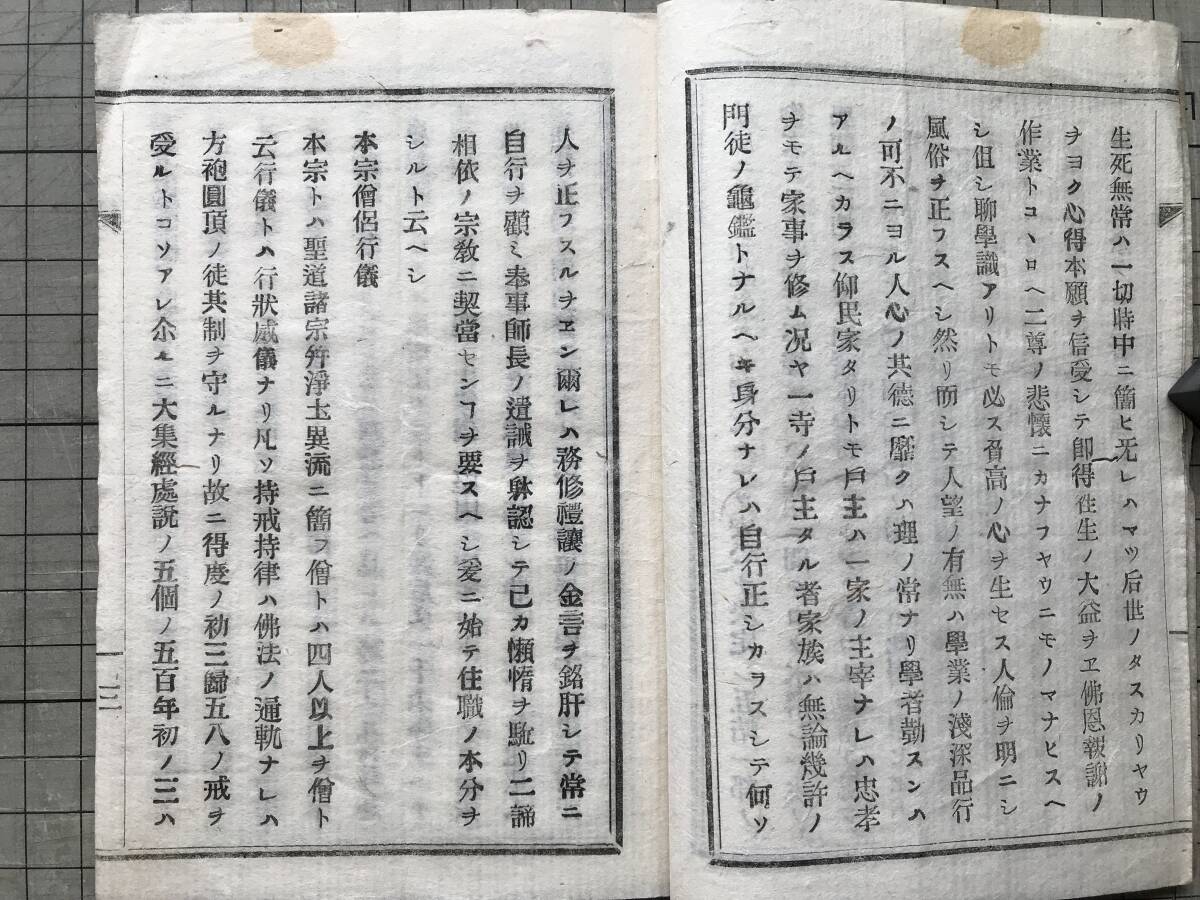 生死無常ハ一切時中ニ簡ヒ旡レハマツ后世ノタスカリヤウ
ヲヨク心得本願ヲ信受シテ卽得徃生ノ大益ヲヱ佛恩報謝ノ
作業トコヽロヘ二尊ノ悲懷ニカナフヤウニモノマナヒスヘ
シ伹シ聊學識アリトモ必ス貢高ノ心ヲ生セス人倫ヲ明ニシ
風俗ヲ正フスヘシ然リ而シテ人望ノ有無ハ學業ノ淺深品行
ノ可不ニヨル人心ノ其德ニ靡クハ理ノ常ナリ學者勤スンハ
アルヘカラス仰民家タリトモ戶主ハ一家ノ主宰ナレハ忠孝
ヲモテ家事ヲ修ム况ヤ一寺ノ戶主タル者家族ハ無論幾許ノ
門徒ノ龜鑑トナルヘキ身分ナレハ自行正シカラスシテ何ソ
人ヲ正フスルヲヱン爾レハ務修禮讓ノ金言ヲ銘肝シテ常ニ
自行ヲ顧ミ奉事師長ノ遺誡ヲ躰認シテ己カ懶惰ヲ耻リ二諦
相依ノ宗敎ニ契當センヿヲ要スヘシ爰ニ始テ住職ノ本分ヲ
シルト云ヘシ
本宗僧侶行儀
本宗トハ聖道諸宗幷淨土異流ニ簡フ僧トハ四人以上ヲ僧ト
云行儀トハ行狀威儀ナリ凡ソ持戒持律ハ佛法ノ通軌ナレハ
方袍圓頂ノ徒其制ヲ守ルナリ故ニ得度ノ初三歸五八ノ戒ヲ
受ルトコソアレ尒ルニ大集經處說ノ五個ノ五百年初ノ三ハ
二